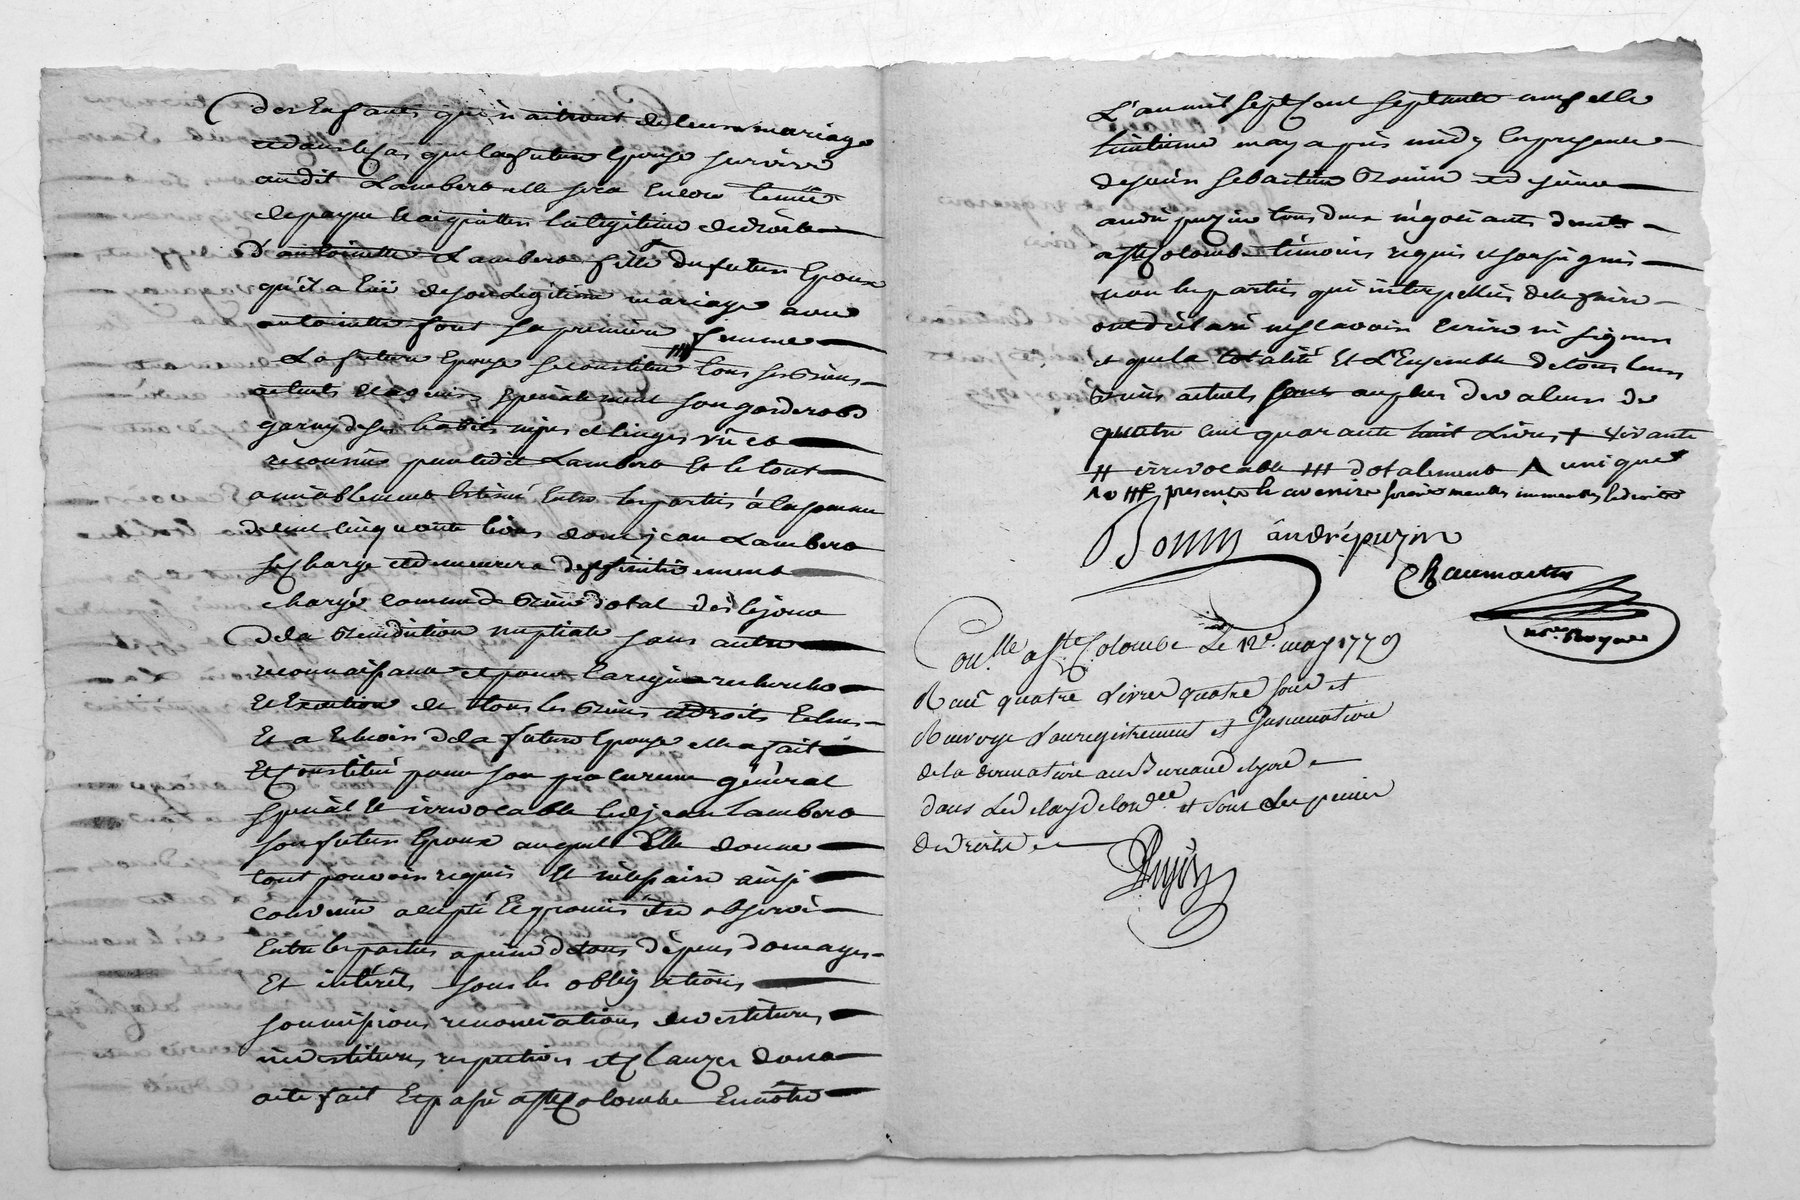 des Enfants qui naitront de leur mariage
et dans le cas que la future Epouse survive
audit Lambert elle sera Encore tenüe
de payer et acquitter la legitime de droit
d'antoinette Lambert fille du futur Epoux
qu'il a Eü de son legitime mariage avec
antoinette font sa premiere femme
La future Epouse se constitue /// tous ses Biens
actuels et acquis specialement son garderobe
garny de ses habits nipes et linges vü et
reconnüs par ledit Lambert Et le tout
amiablement Estimé Entre les parties à la somme
de cent cinquante livres dont jean Lambert
se charge et demeurera deffinitivement
chargé comme de Bien dotal dès le jour
de la Benediction nuptiale sans autre
reconnaissance et pour la regie recherche
et Exaction de tous les Biens et droits Echus
Et a Echoir de la future Epouse elle a fait
Et Constitué pour son procureur général
spécial et irrevocable ledit jean Lambert
son futur Epoux auquel Elle donne
tout pouvoir requis et nécessaire ainsi
convenu accepté Et promis être observé
Entre les parties a peine de tous dépens domages
Et intérêts sous les obligations
soumissions renonciations devestitures
investitures respectives et Clauzes dont
acte fait Et passé a Ste Colombe En notre
L'an mil sept Cent septante neuf et le
huitieme may apres midy En presence
de sieur sebastien Bonin et de sieur
andré puzin tous deux négotiants dudt
a Ste Colombe témoins requis et soussignés
non les parties qui interpellées de le faire
ont déclaré ne sçavoir Ecrire ni signer
et que la totalité Et L'Ensemble de tous leurs
Biens actuels sont au plus de valeur de
quatre cent quarante huit Livres + vivante
++ irrevocable +++ dotalement Λ unique
presents & avenirs meubles immeubles & droits
Bonin andré puzin
Chaumartin
nore Royal
Conllé a Ste Colombe Le 12e. may 1779
Recu quatre Livres quatre sous et
Renvoye L'enregistrement et Insinuation
de la donnation au Bureau de
dans Les delay de L'ordce et sous Les peines
de droit